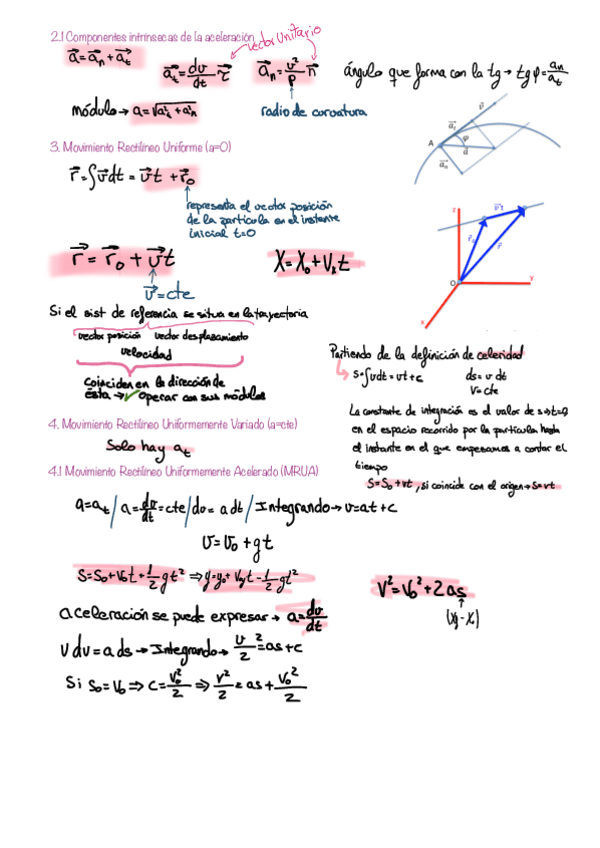 2.1 Componentes intrínsecas de la aceleración
vector unitario
a⃗ = a⃗n + a⃗t
a⃗t = dv/dt τ⃗
a⃗n = v²/ρ n⃗
ángulo que forma con la tg → tg φ = an/at
módulo → a = √a²t + a²n
radio de curvatura
3. Movimiento Rectilíneo Uniforme (a=0)
r⃗ = ∫v⃗dt = v⃗t + r⃗0
representa el vector posición
de la partícula en el instante
inicial t=0
r⃗ = r⃗0 + v⃗t
X = X0 + Vxt
v⃗ = cte
Si el sist de referencia se situa en la trayectoria
vector posición vector desplazamiento
velocidad
Coinciden en la dirección de
ésta → operar con sus módulos
A
v⃗
a⃗t
φ
a⃗
a⃗n
z
v⃗t
r⃗0
r⃗
O
y
x
Partiendo de la definición de celeridad
s=∫vdt = vt + c ds = v dt
v=cte
La constante de integración es el valor de s → t=0
en el espacio recorrido por la partícula hasta
el instante en el que empezamos a contar el
tiempo
S = S0 + vt, si coincide con el origen → S=vt
4. Movimiento Rectilíneo Uniformemente Variado (a=cte)
Solo hay at
4.1 Movimiento Rectilíneo Uniformemente Acelerado (MRUA)
a=at / a = dv/dt = cte / dv = a dt / Integrando → v=at+c
v = v0 + gt
S = S0 + V0t + 1/2 gt² ⇒ y = y0 + V0yt - 1/2 gt²
V² = V0² + 2as
(xf - xi)
aceleración se puede expresar → a = dv/dt
v dv = a ds → Integrando → v²/2 = as + c
Si S0 = V0 ⇒ C = V0²/2 ⇒ v²/2 = as + V0²/2